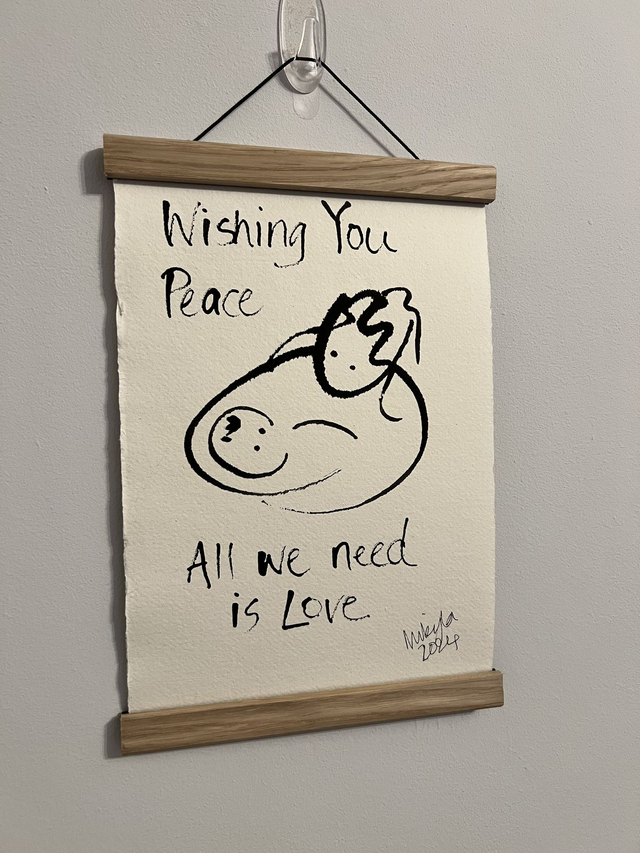 Wishing You
Peace
All we need
is Love
2024